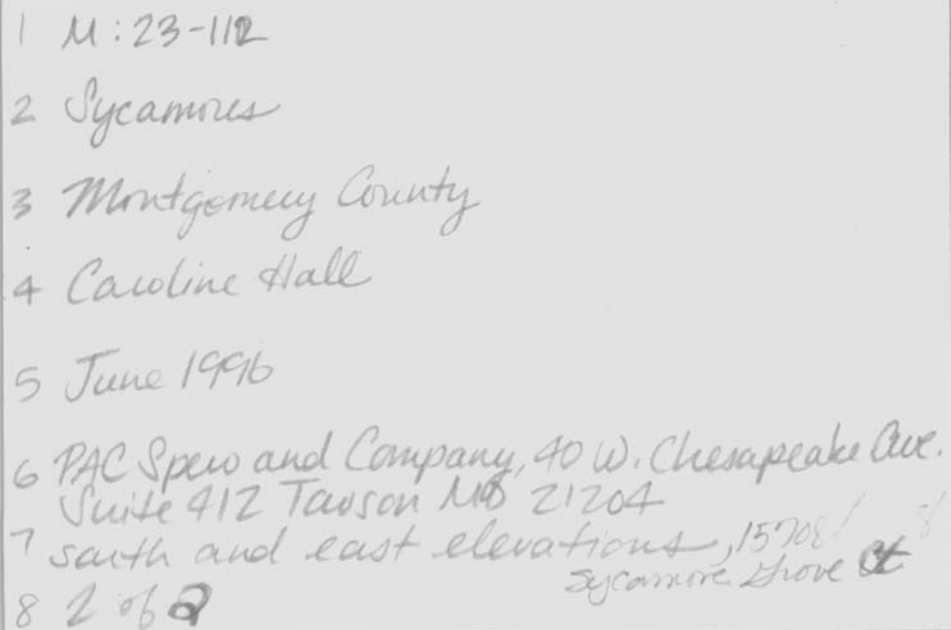 1 M:23-112
2 Sycamores
3 Montgomery County
4 Caroline Hall
5 June 1996
6 PAC Spero and Company, 40 W. Chesapeake Ave.
Suite 412 Towson MD 21204
7 south and east elevations, 15708
Sycamore Grove Ct
8 2 of 2